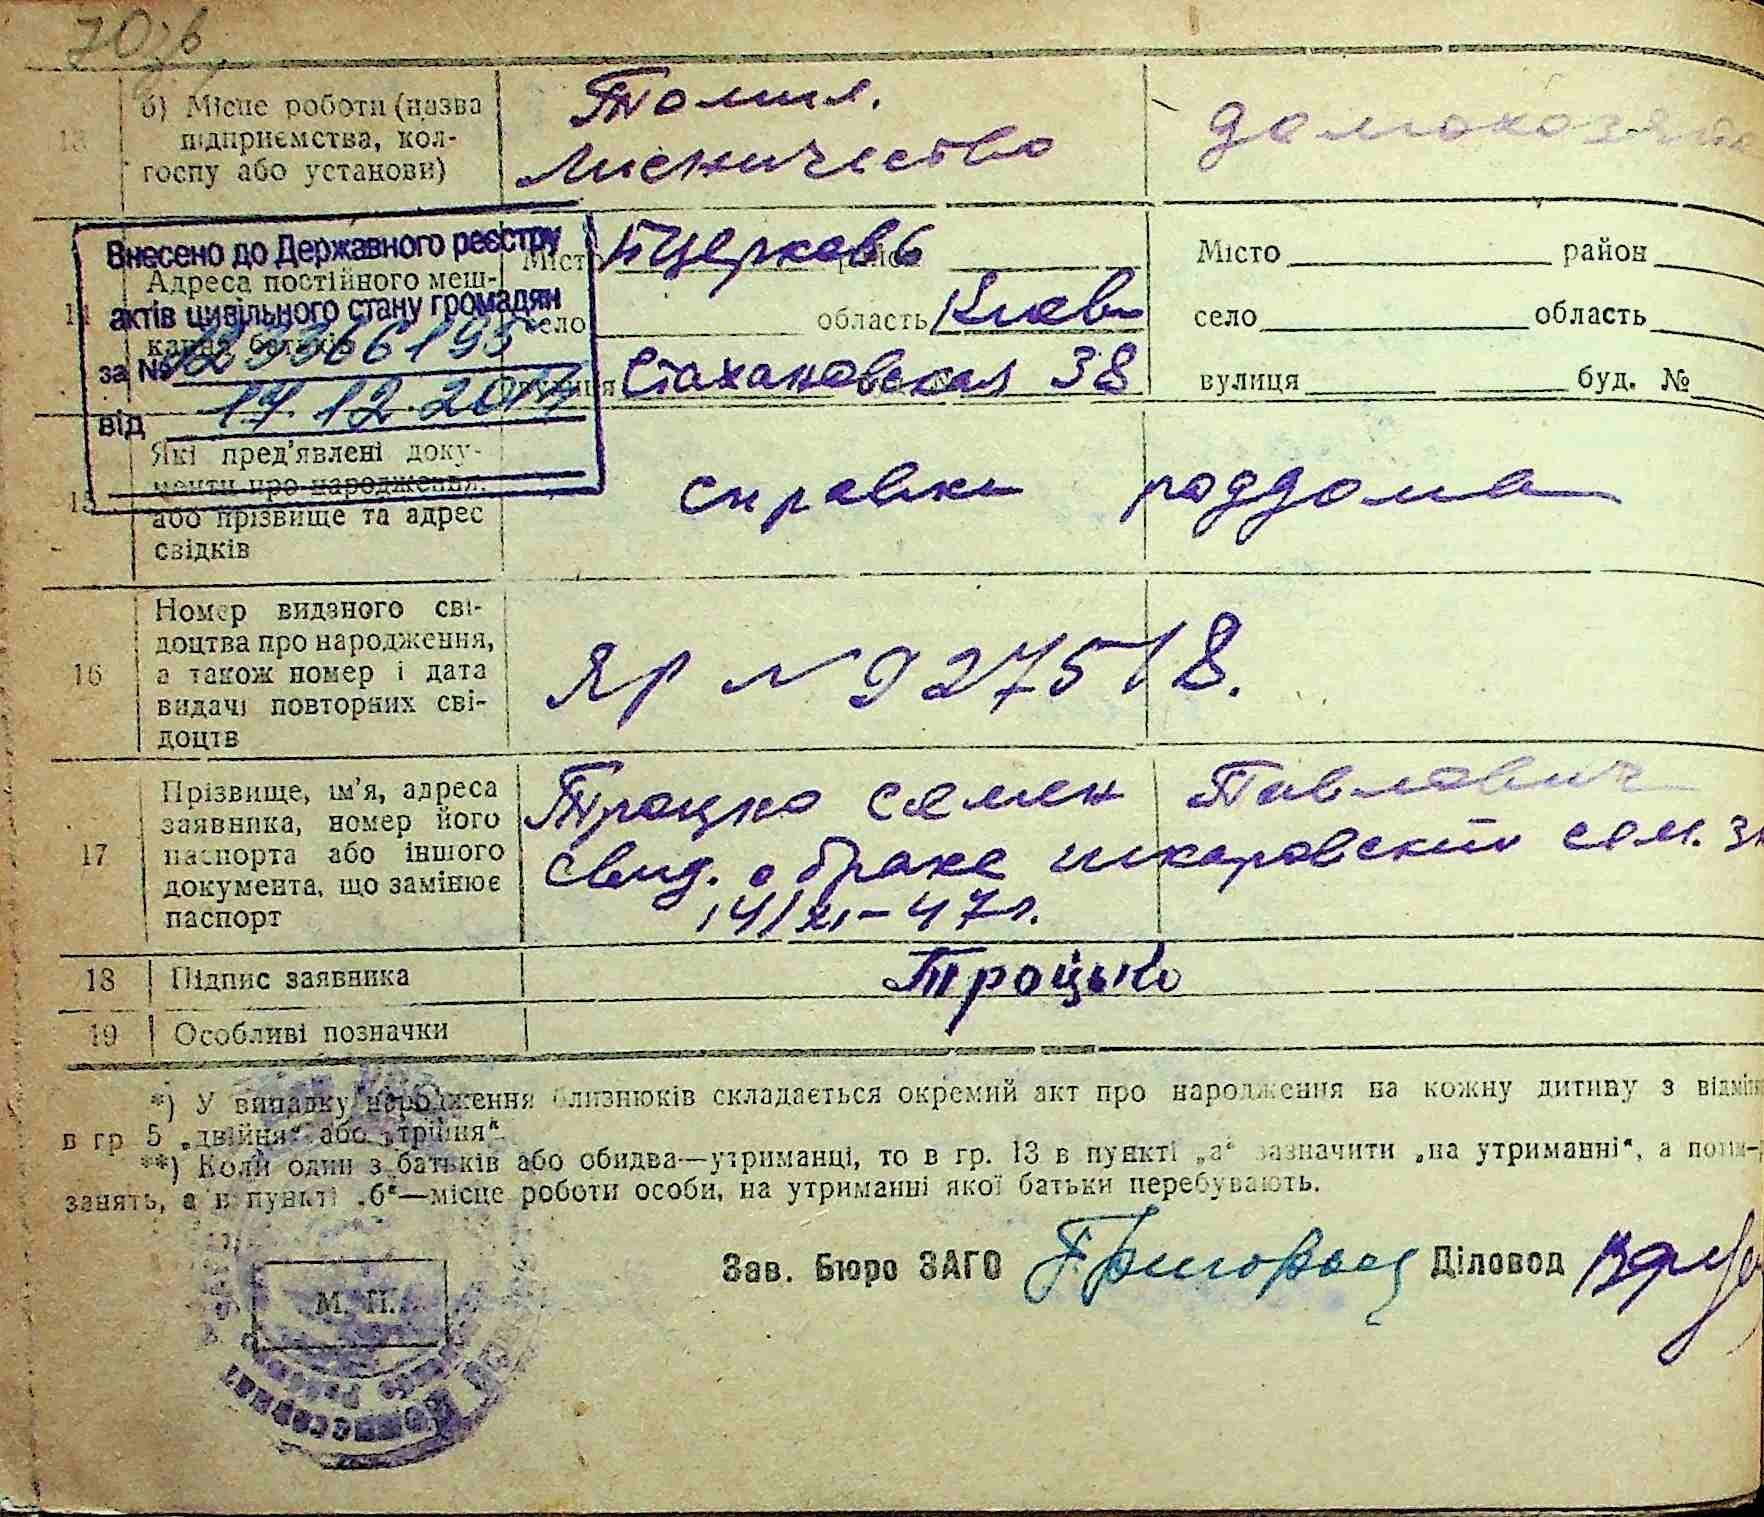 70зв
13 б) Місце роботи (назва підприємства, кол-
госпу або установи)
Томил.
Лісничество
домохозяйка
14 Адреса постійного меш-
кання батьків
Місто Бцерковь район
село область Киев
вулиця Стахановская 38
Місто район
село область
вулиця буд. №
Внесено до Державного реєстру
актів цивільного стану громадян
за №
від 17.12.2017
15 Які пред'явлені доку-
менти про народження,
або прізвище та адрес
свідків
справки роддома
16 Номер виданого сві-
доцтва про народження,
а також номер і дата
видачі повторних сві-
доцтв
ЯР № 927518.
17 Прізвище, ім'я, адреса
заявника, номер його
паспорта або іншого
документа, що замінює
паспорт
Троцко Семен Павлович
Свид. о браке шкаровский сел.
14/XI-47 г.
18 Підпис заявника
Троцько
19 Особливі позначки
*) У випадку народження близнюків складається окремий акт про народження на кожну дитину з відмі
в гр 5 „двійня“ або „трійня“.
**) Коли один з батьків або обидва—утриманці, то в гр. 13 в пункті „а“ зазначити „на утриманні“, а
занять, а в пункті „б“—місце роботи особи, на утриманні якої батьки перебувають.
Зав. Бюро ЗАГС Діловод
М. П.